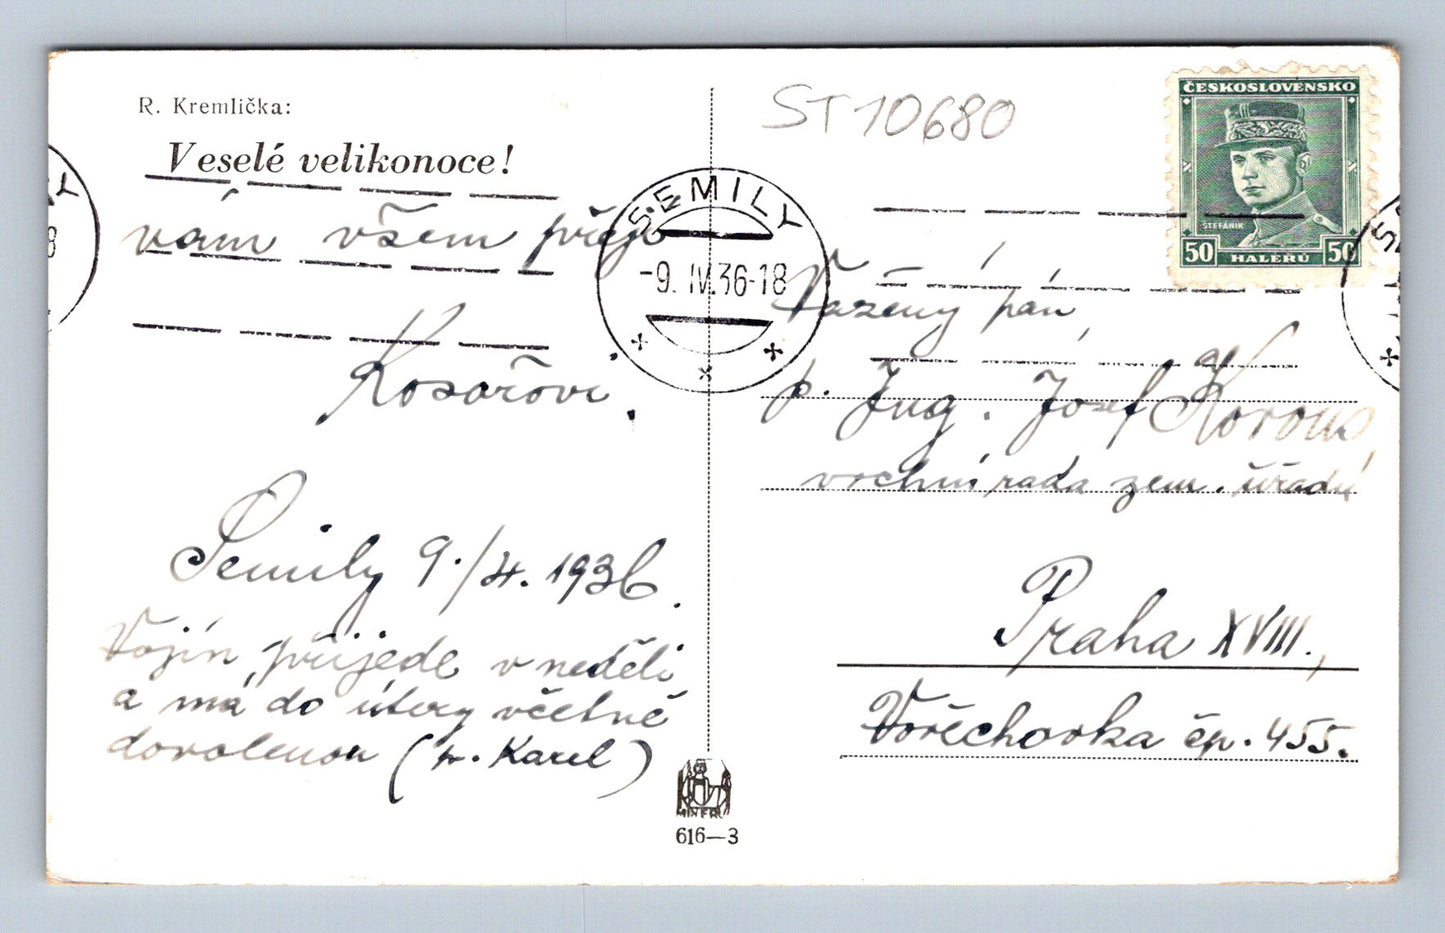 R. Kremlička:
Veselé velikonoce!
vám všem přejí
Kosařovi.
Semily 9./4. 1936.
Vojín přijede v neděli
a má do úterý včetně
dovolenou (t. Karel)
ST 10680
SEMILY
-9. IV. 36-18
ČESKOSLOVENSKO
ŠTEFÁNIK
50 HALÉŘŮ 50
Vážený pán,
p. Ing. Josef Korous
vrchní rada zem. úřadů
Praha XVIII.,
Vořechovka čp. 455.
MINERVA
616—3